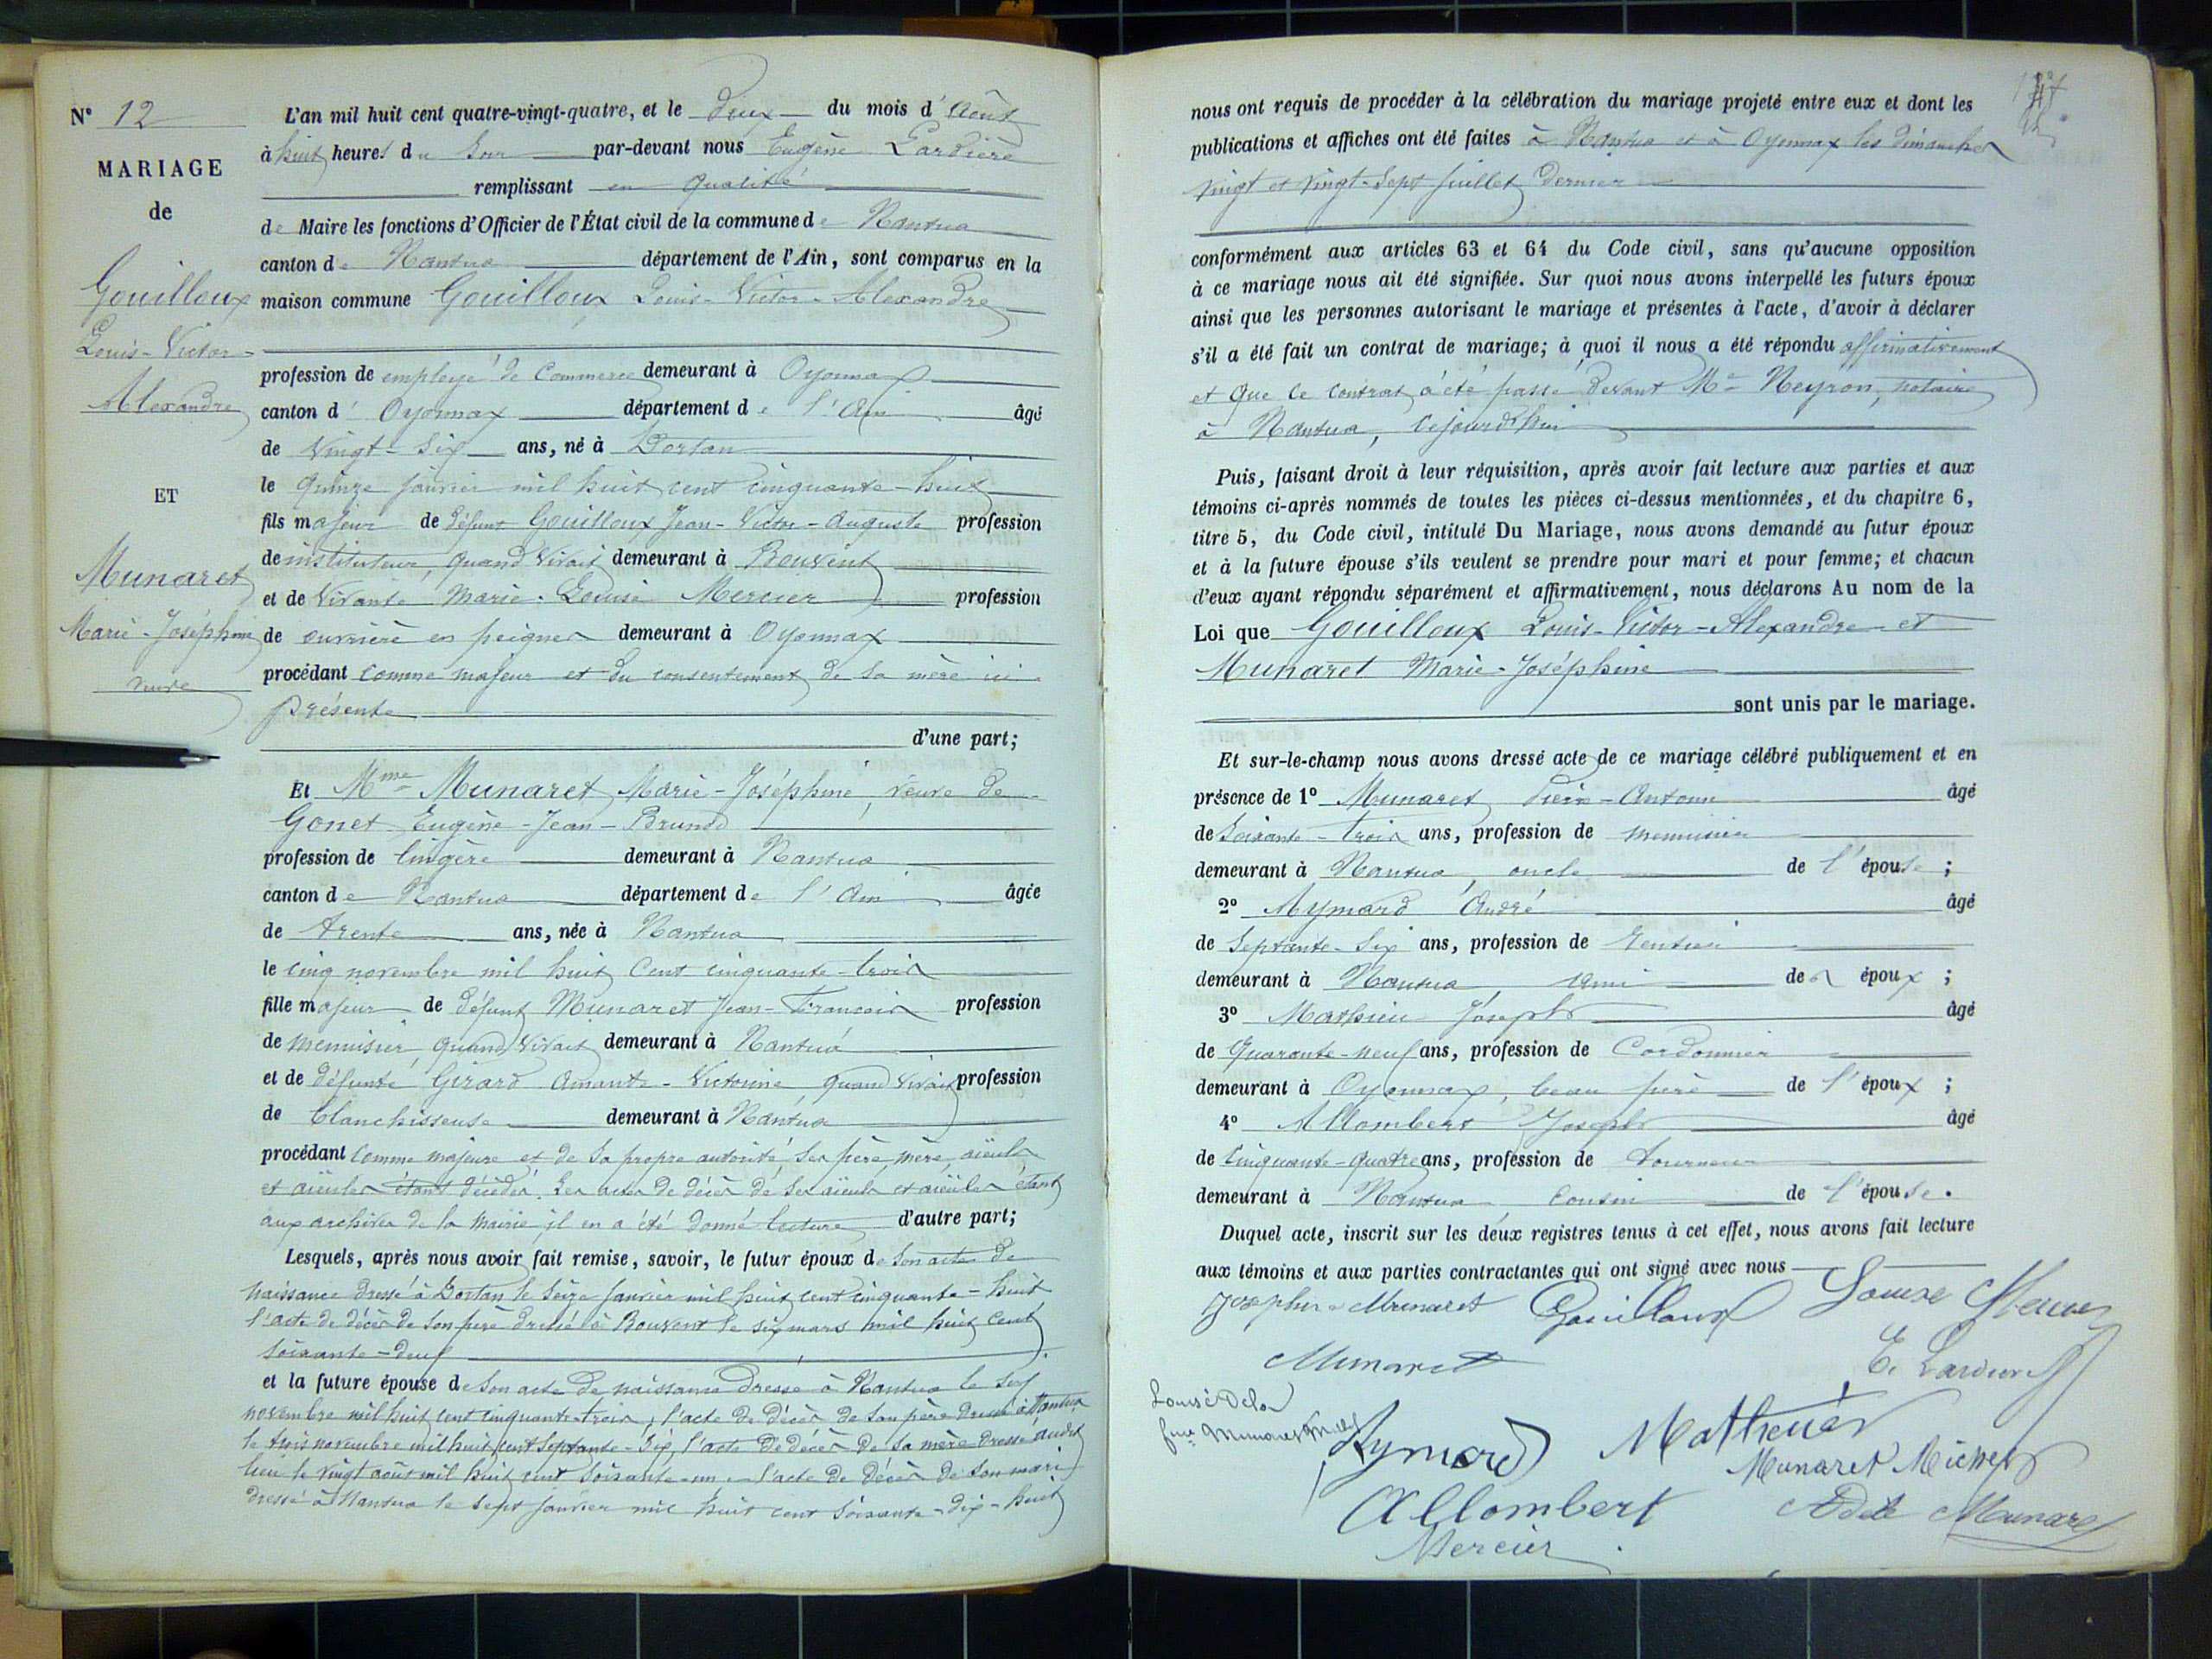 N° 12
MARIAGE
de
Gouilloux
Louis-Victor-
Alexandre
ET
Munaret
Marie-Joséphine
veuve
L'an mil huit cent quatre-vingt-quatre, et le deux du mois d'Août
à huit heures du soir par-devant nous Eugène Lardière
remplissant en qualité
de Maire les fonctions d'Officier de l'État civil de la commune de Nantua
canton de Nantua département de l'Ain, sont comparus en la
maison commune Gouilloux Louis-Victor-Alexandre
profession de employé de commerce demeurant à Oyonnax
canton d'Oyonnax département de l'Ain âgé
de vingt-six ans, né à Dortan
le quinze janvier mil huit cent cinquante-huit
fils majeur de défunt Gouilloux Jean-Victor-Auguste profession
de instituteur, quand vivait demeurant à Bouvent
et de vivante Marie-Louise Mercier profession
de ouvrière en peignes demeurant à Oyonnax
procédant comme majeur et du consentement de sa mère ici
présente
d'une part;
Et Mme Munaret Marie-Joséphine, veuve de
Gonet Eugène-Jean-Bruno
profession de lingère demeurant à Nantua
canton de Nantua département de l'Ain âgée
de trente ans, née à Nantua
le cinq novembre mil huit cent cinquante-trois
fille majeur de défunt Munaret Jean-François profession
de menuisier, quand vivait demeurant à Nantua
et de défunte Girard Amante-Victorine quand vivait profession
de blanchisseuse demeurant à Nantua
procédant comme majeure et de sa propre autorité, ses père, mère, aïeuls
et aïeules étant décédés. Les actes de décès de ses aïeuls et aïeules étant
aux archives de la mairie, il en a été donné lecture d'autre part;
Lesquels, après nous avoir fait remise, savoir, le futur époux de son acte de
naissance dressé à Dortan le seize janvier mil huit cent cinquante-huit
l'acte de décès de son père dressé à Bouvent le six mars mil huit cent
soixante-deux
et la future épouse de son acte de naissance dressé à Nantua le six
novembre mil huit cent cinquante-trois; l'acte de décès de son père dressé à Nantua
le trois novembre mil huit cent septante-six, l'acte de décès de sa mère dressé audit
lieu le vingt août mil huit cent soixante-un. l'acte de décès de son mari
dressé à Nantua le sept janvier mil huit cent soixante-dix-huit
nous ont requis de procéder à la célébration du mariage projeté entre eux et dont les
publications et affiches ont été faites à Nantua et à Oyonnax les dimanches
vingt et vingt-sept juillet dernier
conformément aux articles 63 et 64 du Code civil, sans qu'aucune opposition
à ce mariage nous ait été signifiée. Sur quoi nous avons interpellé les futurs époux
ainsi que les personnes autorisant le mariage et présentes à l'acte, d'avoir à déclarer
s'il a été fait un contrat de mariage; à quoi il nous a été répondu affirmativement
et que le contrat a été passé devant Me Neyron, notaire
à Nantua, cejourd'hui
Puis, faisant droit à leur réquisition, après avoir fait lecture aux parties et aux
témoins ci-après nommés de toutes les pièces ci-dessus mentionnées, et du chapitre 6,
titre 5, du Code civil, intitulé Du Mariage, nous avons demandé au futur époux
et à la future épouse s'ils veulent se prendre pour mari et pour femme; et chacun
d'eux ayant répondu séparément et affirmativement, nous déclarons Au nom de la
Loi que Gouilloux Louis-Victor-Alexandre et
Munaret Marie-Joséphine
sont unis par le mariage.
Et sur-le-champ nous avons dressé acte de ce mariage célébré publiquement et en
présence de 1° Munaret Antoine âgé
de soixante-trois ans, profession de menuisier
demeurant à Nantua, oncle de l'épouse;
2° Aymard André âgé
de septante-six ans, profession de rentier
demeurant à Nantua, ami des époux;
3° Mathieu Joseph âgé
de quarante-neuf ans, profession de cordonnier
demeurant à Oyonnax, beau père de l'époux;
4° Allombert Joseph âgé
de cinquante-quatre ans, profession de tourneur
demeurant à Nantua, cousin de l'épouse.
Duquel acte, inscrit sur les deux registres tenus à cet effet, nous avons fait lecture
aux témoins et aux parties contractantes qui ont signé avec nous
Josephine Munaret Gouilloux Louise Mercier
Munaret E. Lardière
Louise
Munaret
Aymard Mathieu
Munaret Michel
Allombert Adele Munaret
Mercier